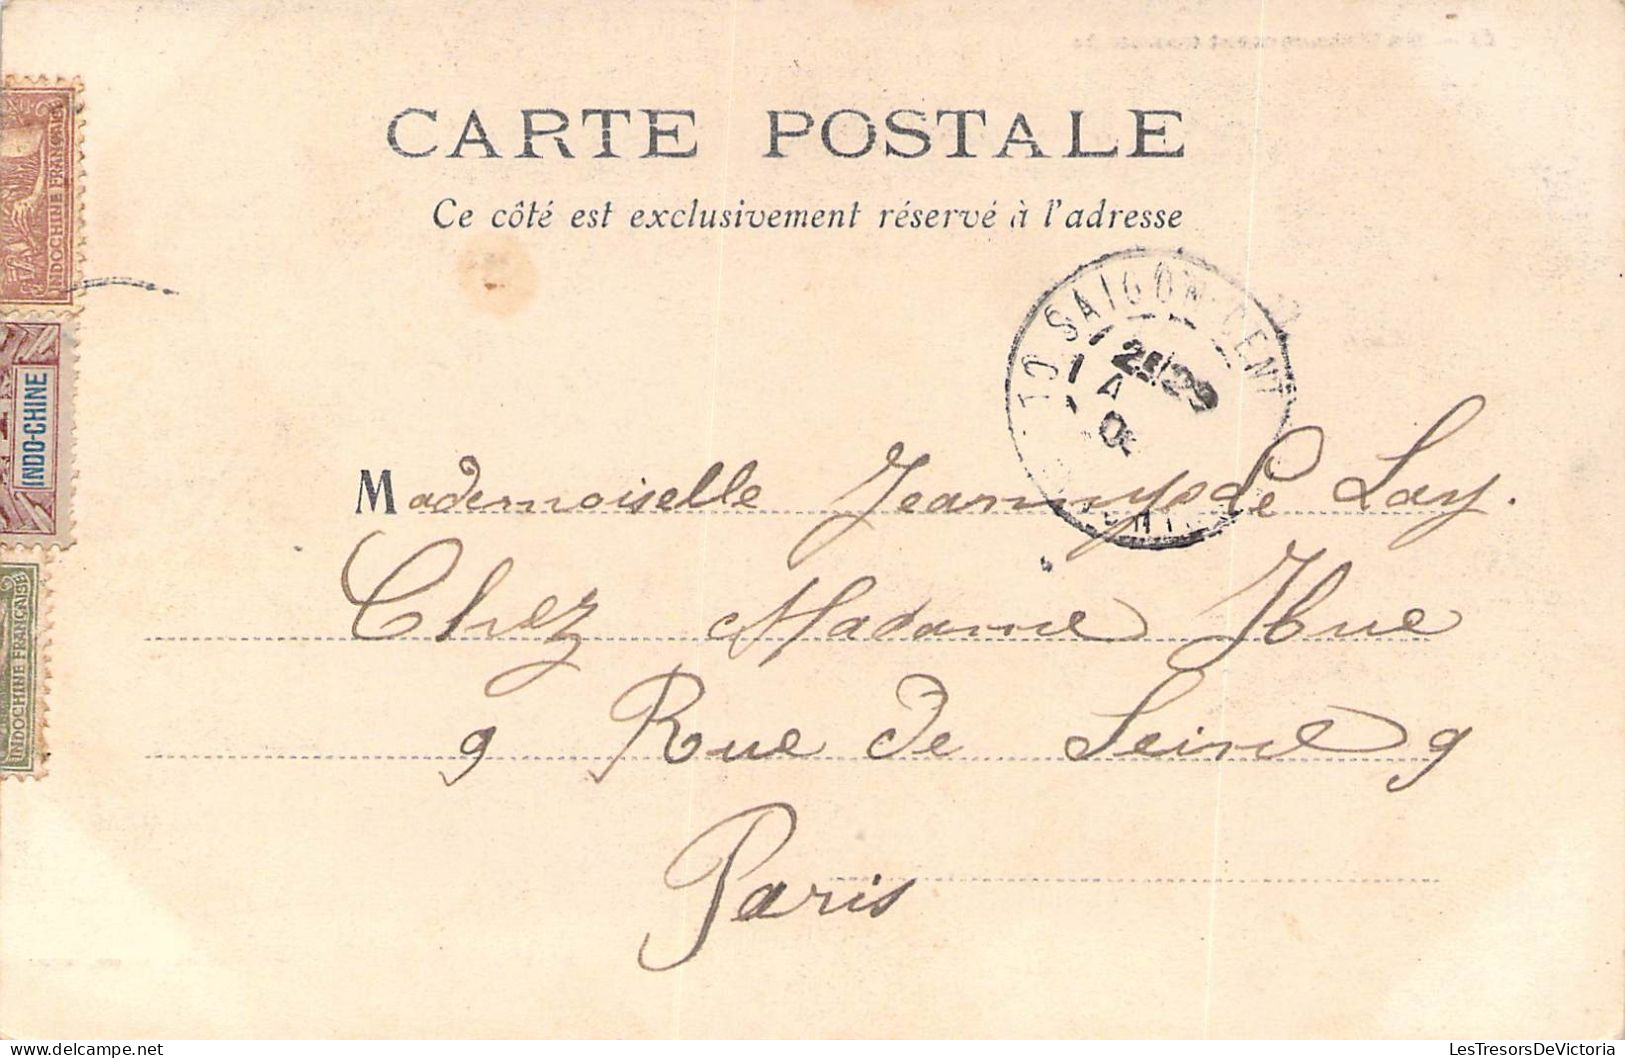 CARTE POSTALE
Ce côté est exclusivement réservé à l'adresse
INDOCHINE FRANÇAISE
INDO-CHINE
INDOCHINE FRANÇAISE
SAIGON-CENT
Mademoiselle Jeanny de Lay.
Chez Madame Hue
9 Rue de Seine 9
Paris
LesTresorsDeVictoria